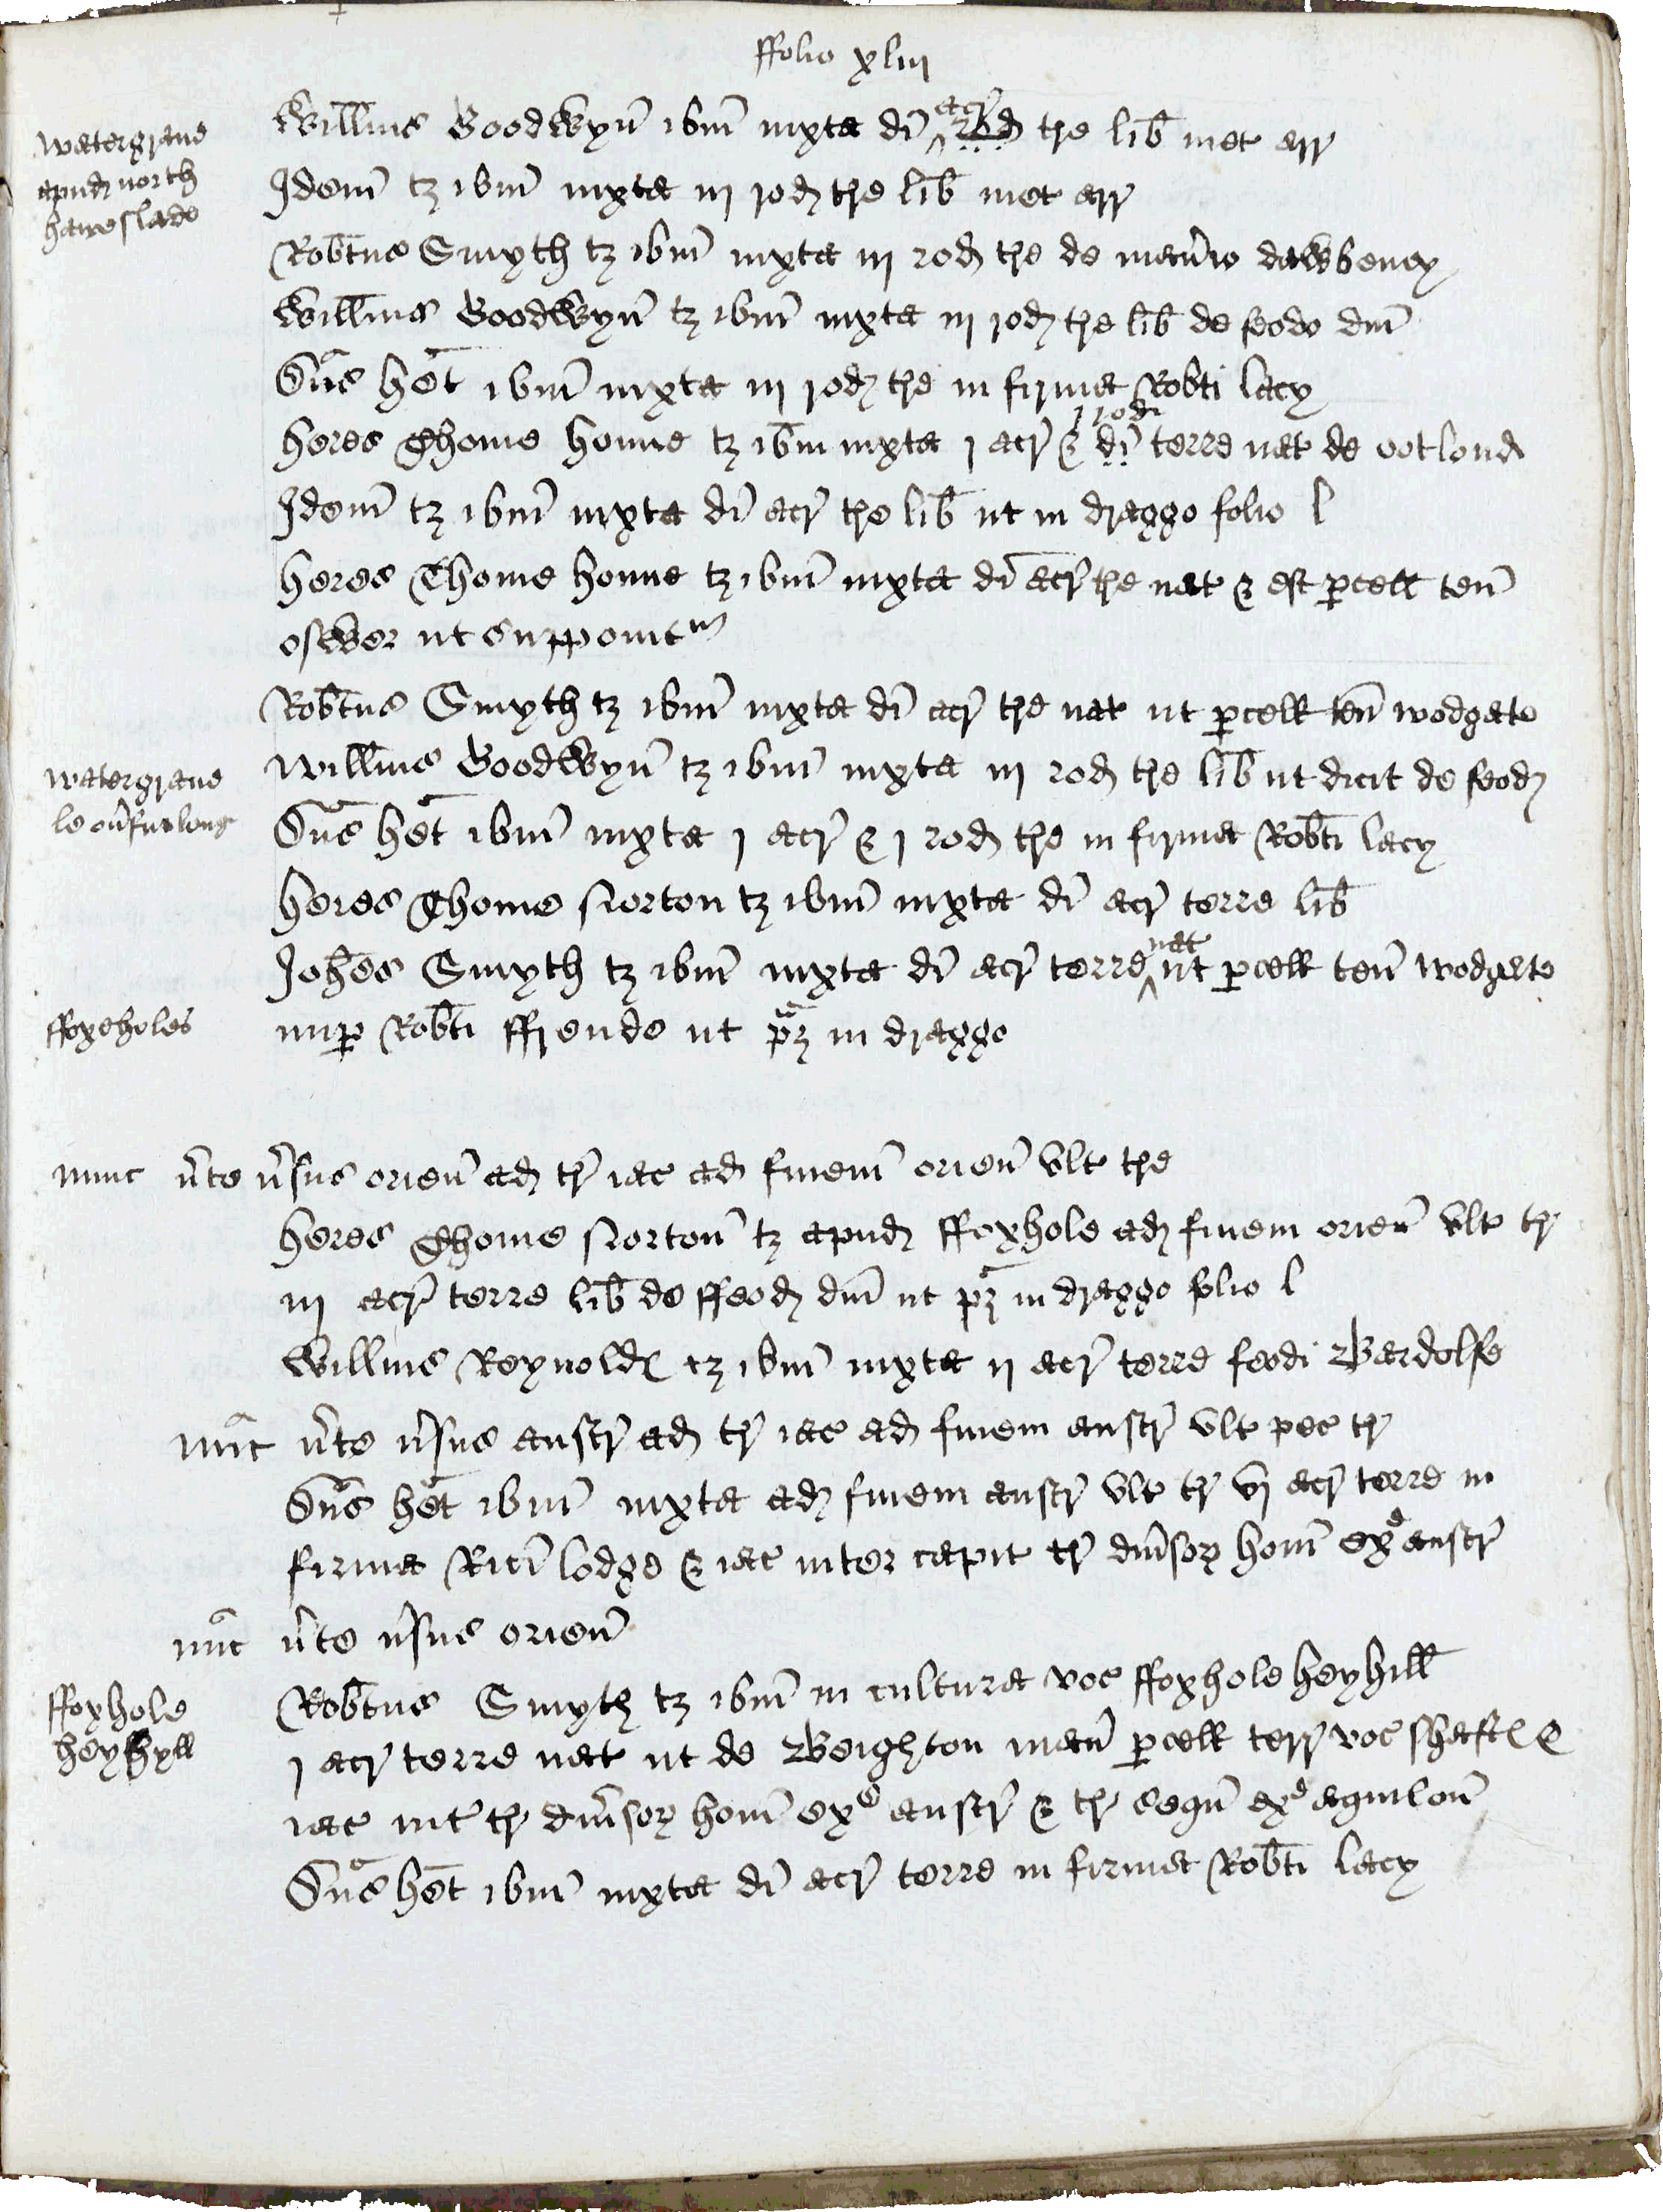 ffolio xliij
watergrave
apud north
haweslade
Willms Goodwyn ibm iuxta di acr rod tre lib met arr
Idem tz ibm iuxta iij rod tre lib met arr
Robtus Smyth tz ibm iuxta iij rod tre de manio dawbeney
Willms Goodwyn tz ibm iuxta iij rod tre lib de feodo dni
Dns het ibm iuxta iij rod tre in firma Robti lacy
heres Thome honne tz ibm iuxta j acr & di j rod terre nat de
Idem tz ibm iuxta di acr tre lib ut in draggo folio l
heres Thome honne tz ibm iuxta di acr tre nat & est pcell ten
ut
Robtus Smyth tz ibm iuxta di acr tre nat ut pcell ten wodgate
watergrave
le ovfurlong
Willms Goodwyn tz ibm iuxta iij rod tre lib ut dicit de feod
Dns het ibm iuxta j acr & j rod tre in firma Robti lacy
heres Thome Norton tz ibm iuxta di acr terre lib
Johes Smyth tz ibm iuxta di acr terre nat ut pcell ten wodgate
ffoxeholes
nup Robti ffrende ut pz in draggo
nunc vte vsus orien ad tr iac ad finem orien ult tre
heres Thome Norton tz apud ffoxhole ad finem orien ult tr
iij acr terre lib de ffeod dni ut pz in draggo folio l
Willms Reynold tz ibm iuxta ij acr terre feodi Bardolfe
nuc vte vsus austr ad tr iac ad finem austr ult pec tr
Dns het ibm iuxta ad finem austr ult tr vj acr terre in
firma Rici lodge & iac inter capit tr divsor hom ex austr
nuc vte vsus orien
ffoxhole
heyhyll
Robtus Smyth tz ibm in cultura voc ffoxhole heyhill
j acr terre nat ut de Beighton man pcell terr voc &
iac int tr divsor hom ex austr & tr sequ ex aquilon
Dns het ibm iuxta di acr terre in firma Robti lacy